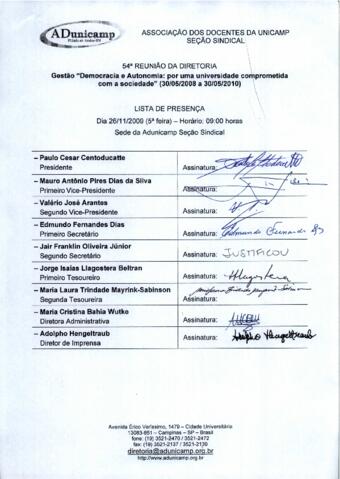 ADunicamp
ASSOCIAÇÃO DOS DOCENTES DA UNICAMP
SEÇÃO SINDICAL
54ª REUNIÃO DA DIRETORIA
Gestão "Democracia e Autonomia: por uma universidade comprometida
com a sociedade" (30/05/2008 a 30/05/2010)
LISTA DE PRESENÇA
Dia 26/11/2009 (5ª feira) – Horário: 09:00 horas
Sede da Adunicamp Seção Sindical
– Paulo Cesar Centoducatte
Presidente
Assinatura:
– Mauro Antônio Pires Dias da Silva
Primeiro Vice-Presidente
Assinatura:
– Valério José Arantes
Segundo Vice-Presidente
Assinatura:
– Edmundo Fernandes Dias
Primeiro Secretário
Assinatura: Edmundo Fernandes Dias
– Jair Franklin Oliveira Júnior
Segundo Secretário
Assinatura: JUSTIFICOU
– Jorge Isaias Llagostera Beltran
Primeiro Tesoureiro
Assinatura: Llagostera
– Maria Laura Trindade Mayrink-Sabinson
Segunda Tesoureira
Assinatura:
– Maria Cristina Bahia Wutke
Diretora Administrativa
Assinatura:
– Adolpho Hengeltraub
Diretor de Imprensa
Assinatura: Adolpho Hengeltraub
Avenida Érico Veríssimo, 1479 – Cidade Universitária
13083-851 – Campinas – SP – Brasil
fone: (19) 3521-2470 / 3521-2472
fax: (19) 3521-2137 / 3521-2139
diretoria@adunicamp.org.br
http://www.adunicamp.org.br